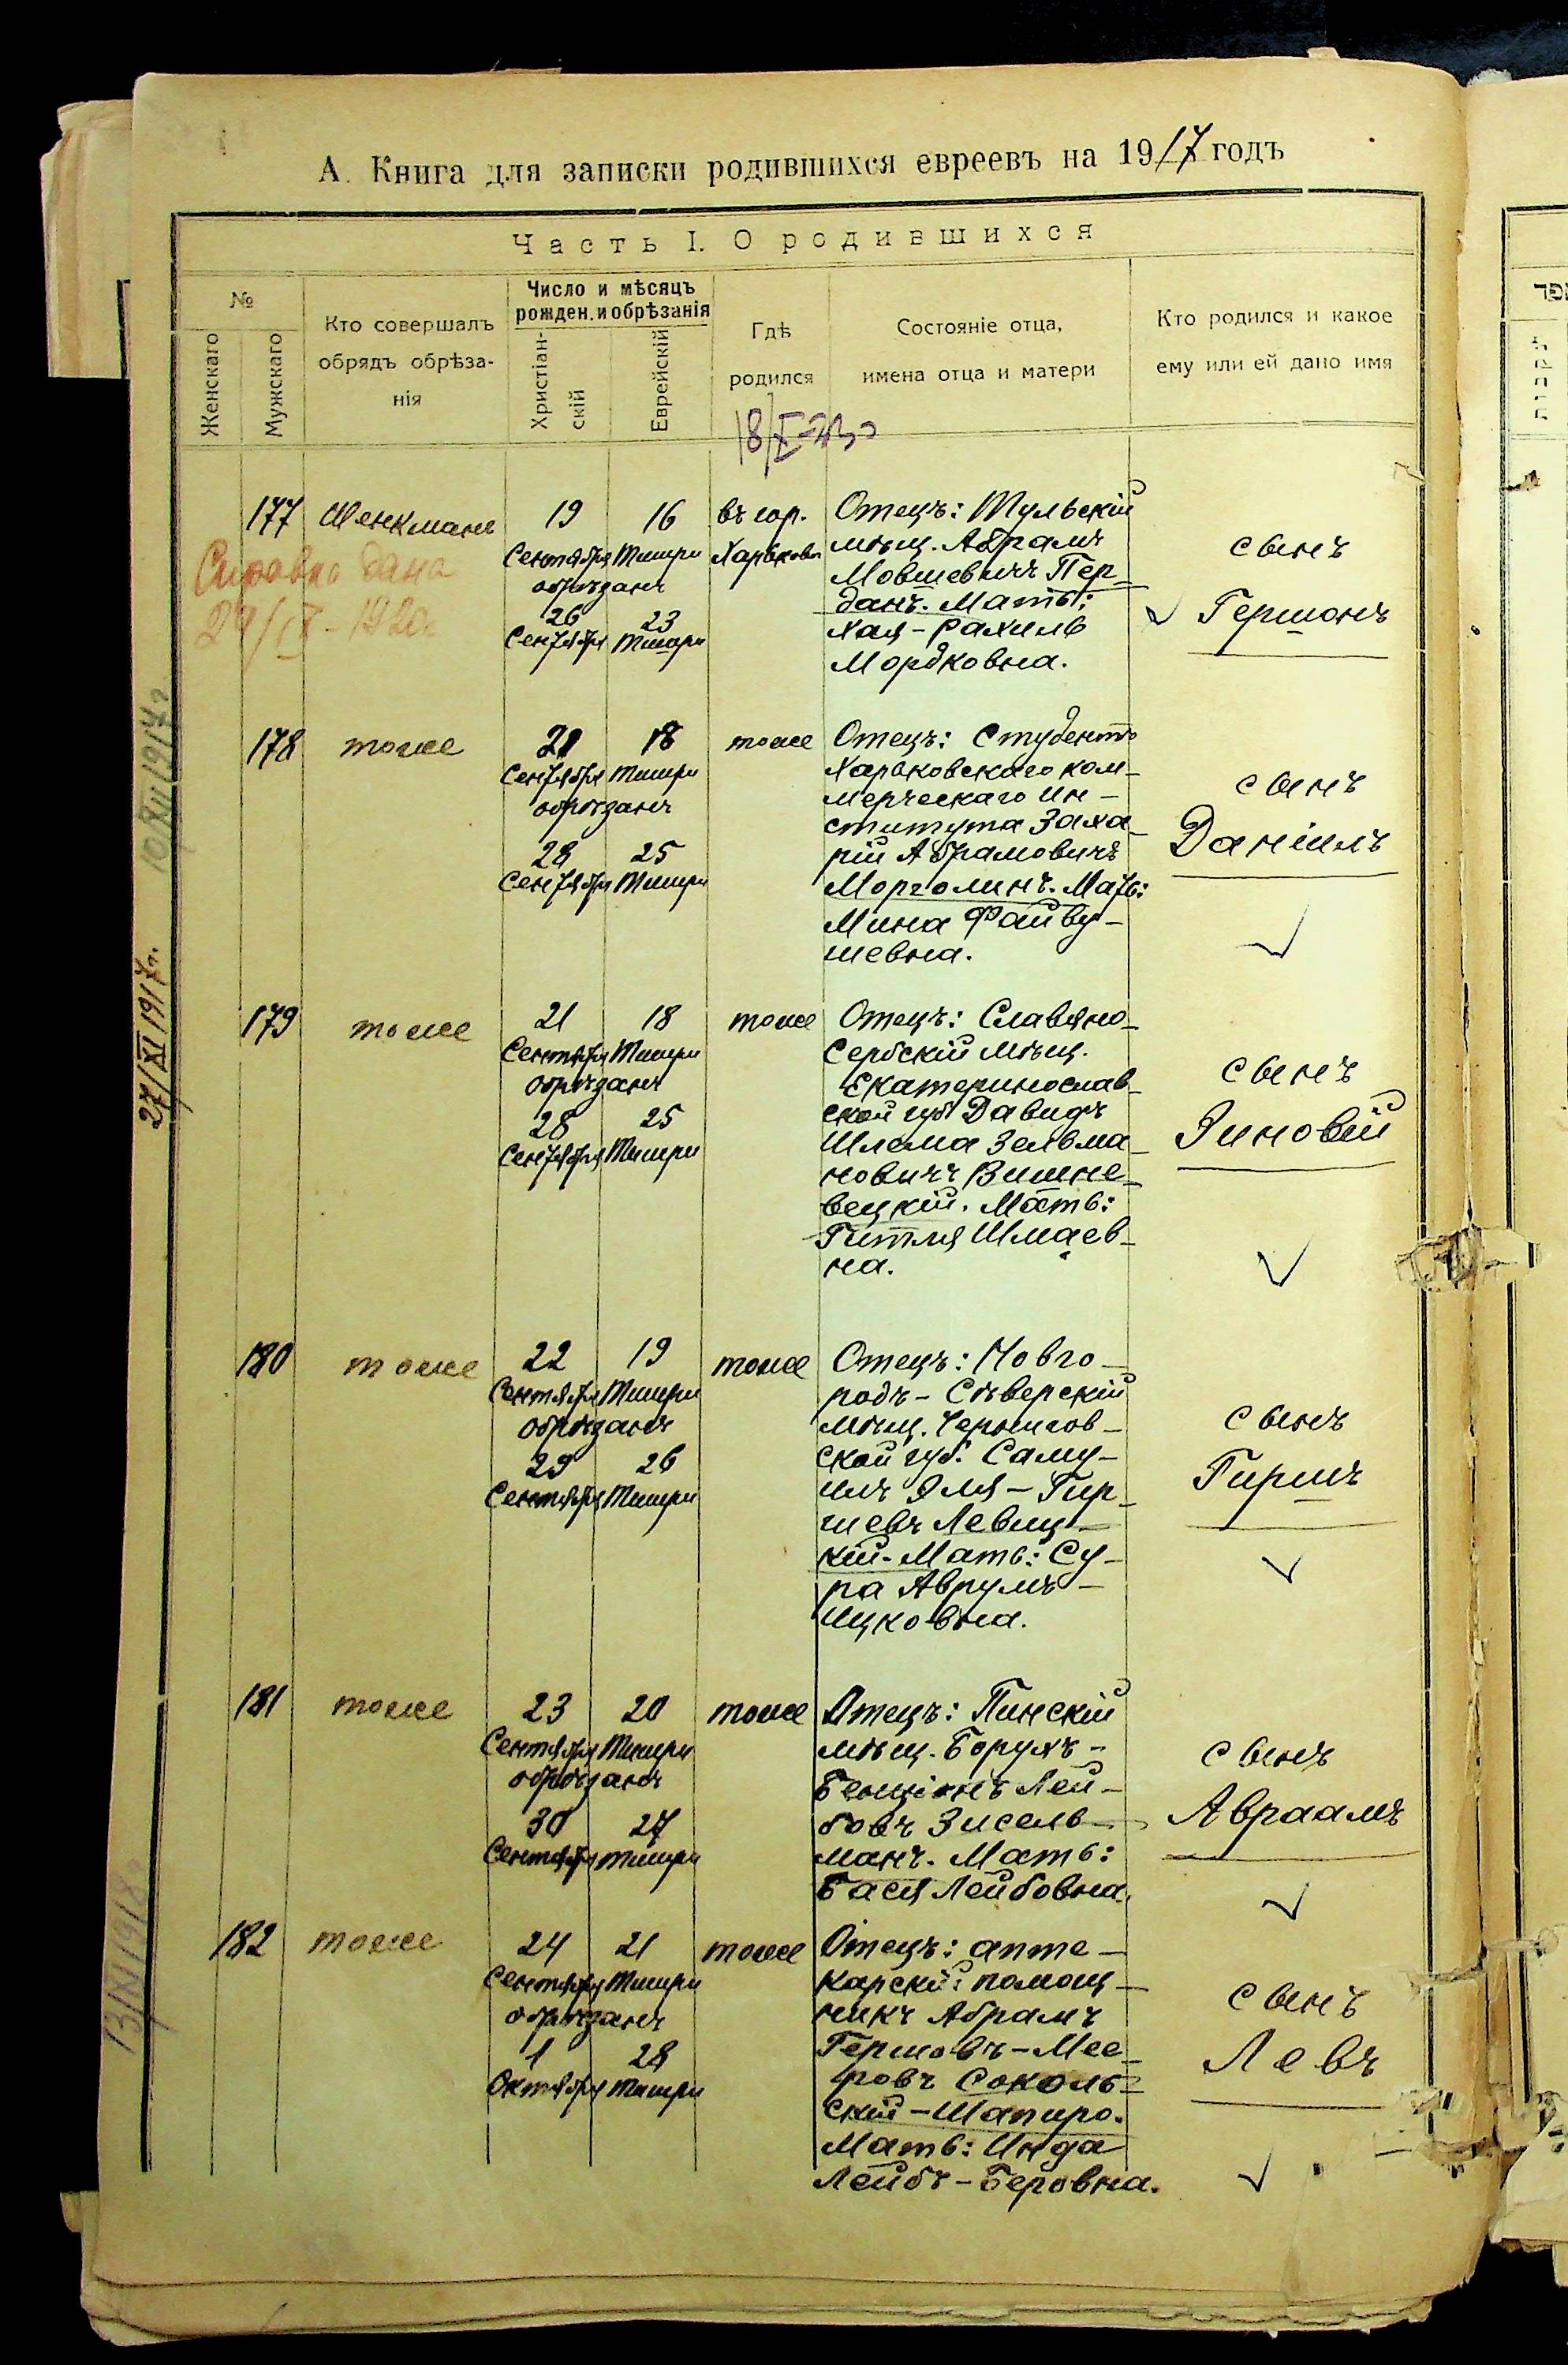 А. Книга для записки родившихся евреевъ на 1917 годъ
Часть I. О родившихся
№
Женскаго
Мужскаго
Кто совершалъ
обрядъ обрѣза-
нія
Число и мѣсяцъ
рожден. и обрѣзанія
Христіан-
скій
Еврейскій
Гдѣ
родился
Состояніе отца,
имена отца и матери
Кто родился и какое
ему или ей дано имя
177
Шенкманъ
19
Сентября
16
Тишри
обрѣзанъ
26
Сентября
23
Тишри
въ гор.
Харьковѣ
Отецъ: Тульскій
мѣщ. Абрамъ
Мовшевичъ Пер-
данъ. Мать:
Хая-Рахиль
Мордковна.
сынъ
Гершонъ
Справка дана
178
тоже
21
Сентября
18
Тишри
обрѣзанъ
28
Сентября
25
Тишри
тоже
Отецъ: Студентъ
Харьковскаго ком-
мерческаго Ин-
ститута Заха-
рій Абрамовичъ
Морголинъ. Мать:
Мина Файву-
шевна.
сынъ
Даніилъ
179
тоже
21
Сентября
18
Тишри
обрѣзанъ
28
Сентября
25
Тишри
тоже
Отецъ: Славяно-
Сербскій мѣщ.
Екатеринослав-
ской губ. Давидъ
Шлема Зельма-
новичъ Вишне-
вецкій. Мать:
Гитля Шмаев-
на.
сынъ
Зиновій
180
тоже
22
Сентября
19
Тишри
обрѣзанъ
29
Сентября
26
Тишри
тоже
Отецъ: Новго-
родъ-Сѣверскій
мѣщ. Чернигов-
ской губ. Саму-
илъ Эля-Гир-
шевъ Левиц-
кій. Мать: Су-
ра Аврумъ-
Ицковна.
сынъ
Гиршъ
181
тоже
23
Сентября
20
Тишри
обрѣзанъ
30
Сентября
27
Тишри
тоже
Отецъ: Пинскій
мѣщ. Борухъ-
Бенціонъ Лей-
бовъ Зисель-
манъ. Мать:
Бася Лейбовна.
сынъ
Авраамъ
182
тоже
24
Сентября
21
Тишри
обрѣзанъ
1
Октября
28
Тишри
тоже
Отецъ: апте-
карскій помощ-
никъ Абрамъ
Гершовъ-Мее-
ровъ Соколь-
скій-Шапиро.
Мать: Инда
Лейбъ-Беровна.
сынъ
Левъ
10/XII 1917г.
27/XI 1917г.